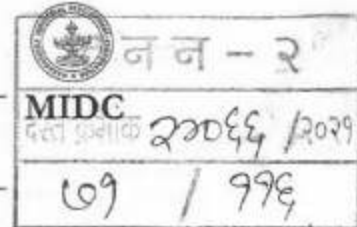 न न - २
MIDC
दस्त क्रमांक /२०२१
७१ / ११६